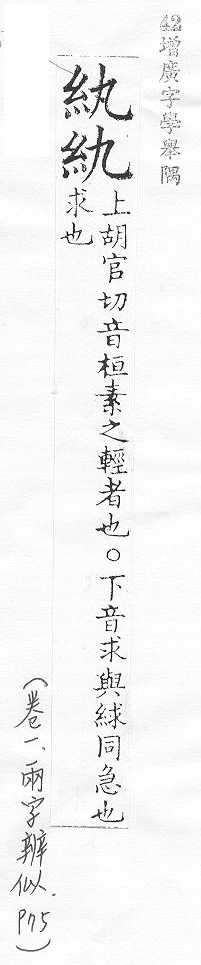 42增廣字學舉隅
紈紈
上胡官切音桓素之輕者也○下音求與絿同急也
求也
(卷一、兩字辨似.P75)